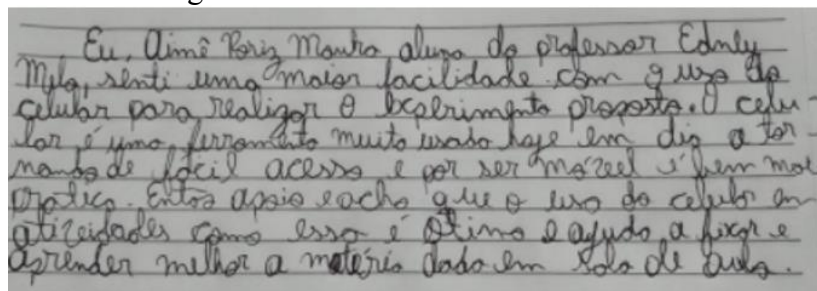 Eu, Aimê Moura aluna do professor Ednley
senti uma maior facilidade com o uso do
celular para realizar o experimento proposto. O celu-
lar é uma ferramenta muito usado hoje em dia a tor-
nando de fácil acesso e por ser móvel é bem mai
prático. Então apoio e acho que o uso do celular em
atividades como essa é ótimo e ajuda a fixar e
aprender melhor a matéria dada em sala de aula.